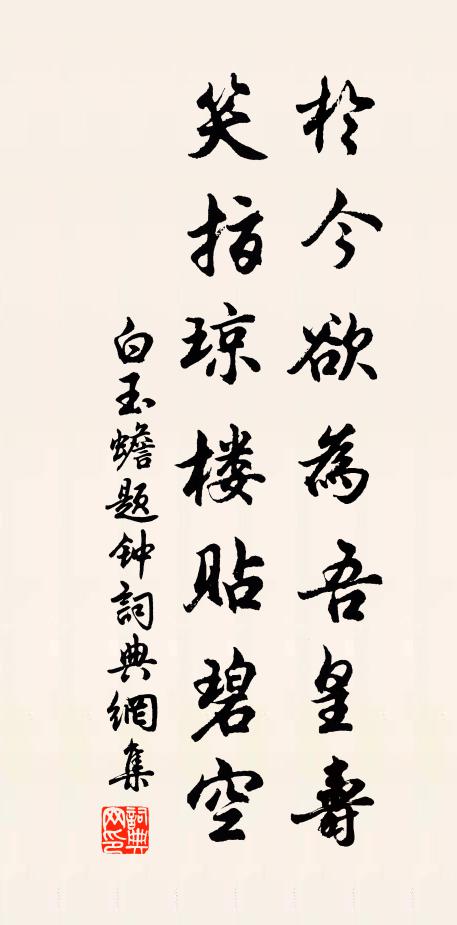 於今欲為吾皇壽
笑指琼楼贴碧空
白玉蟾题钟詞典網集
詞典網印